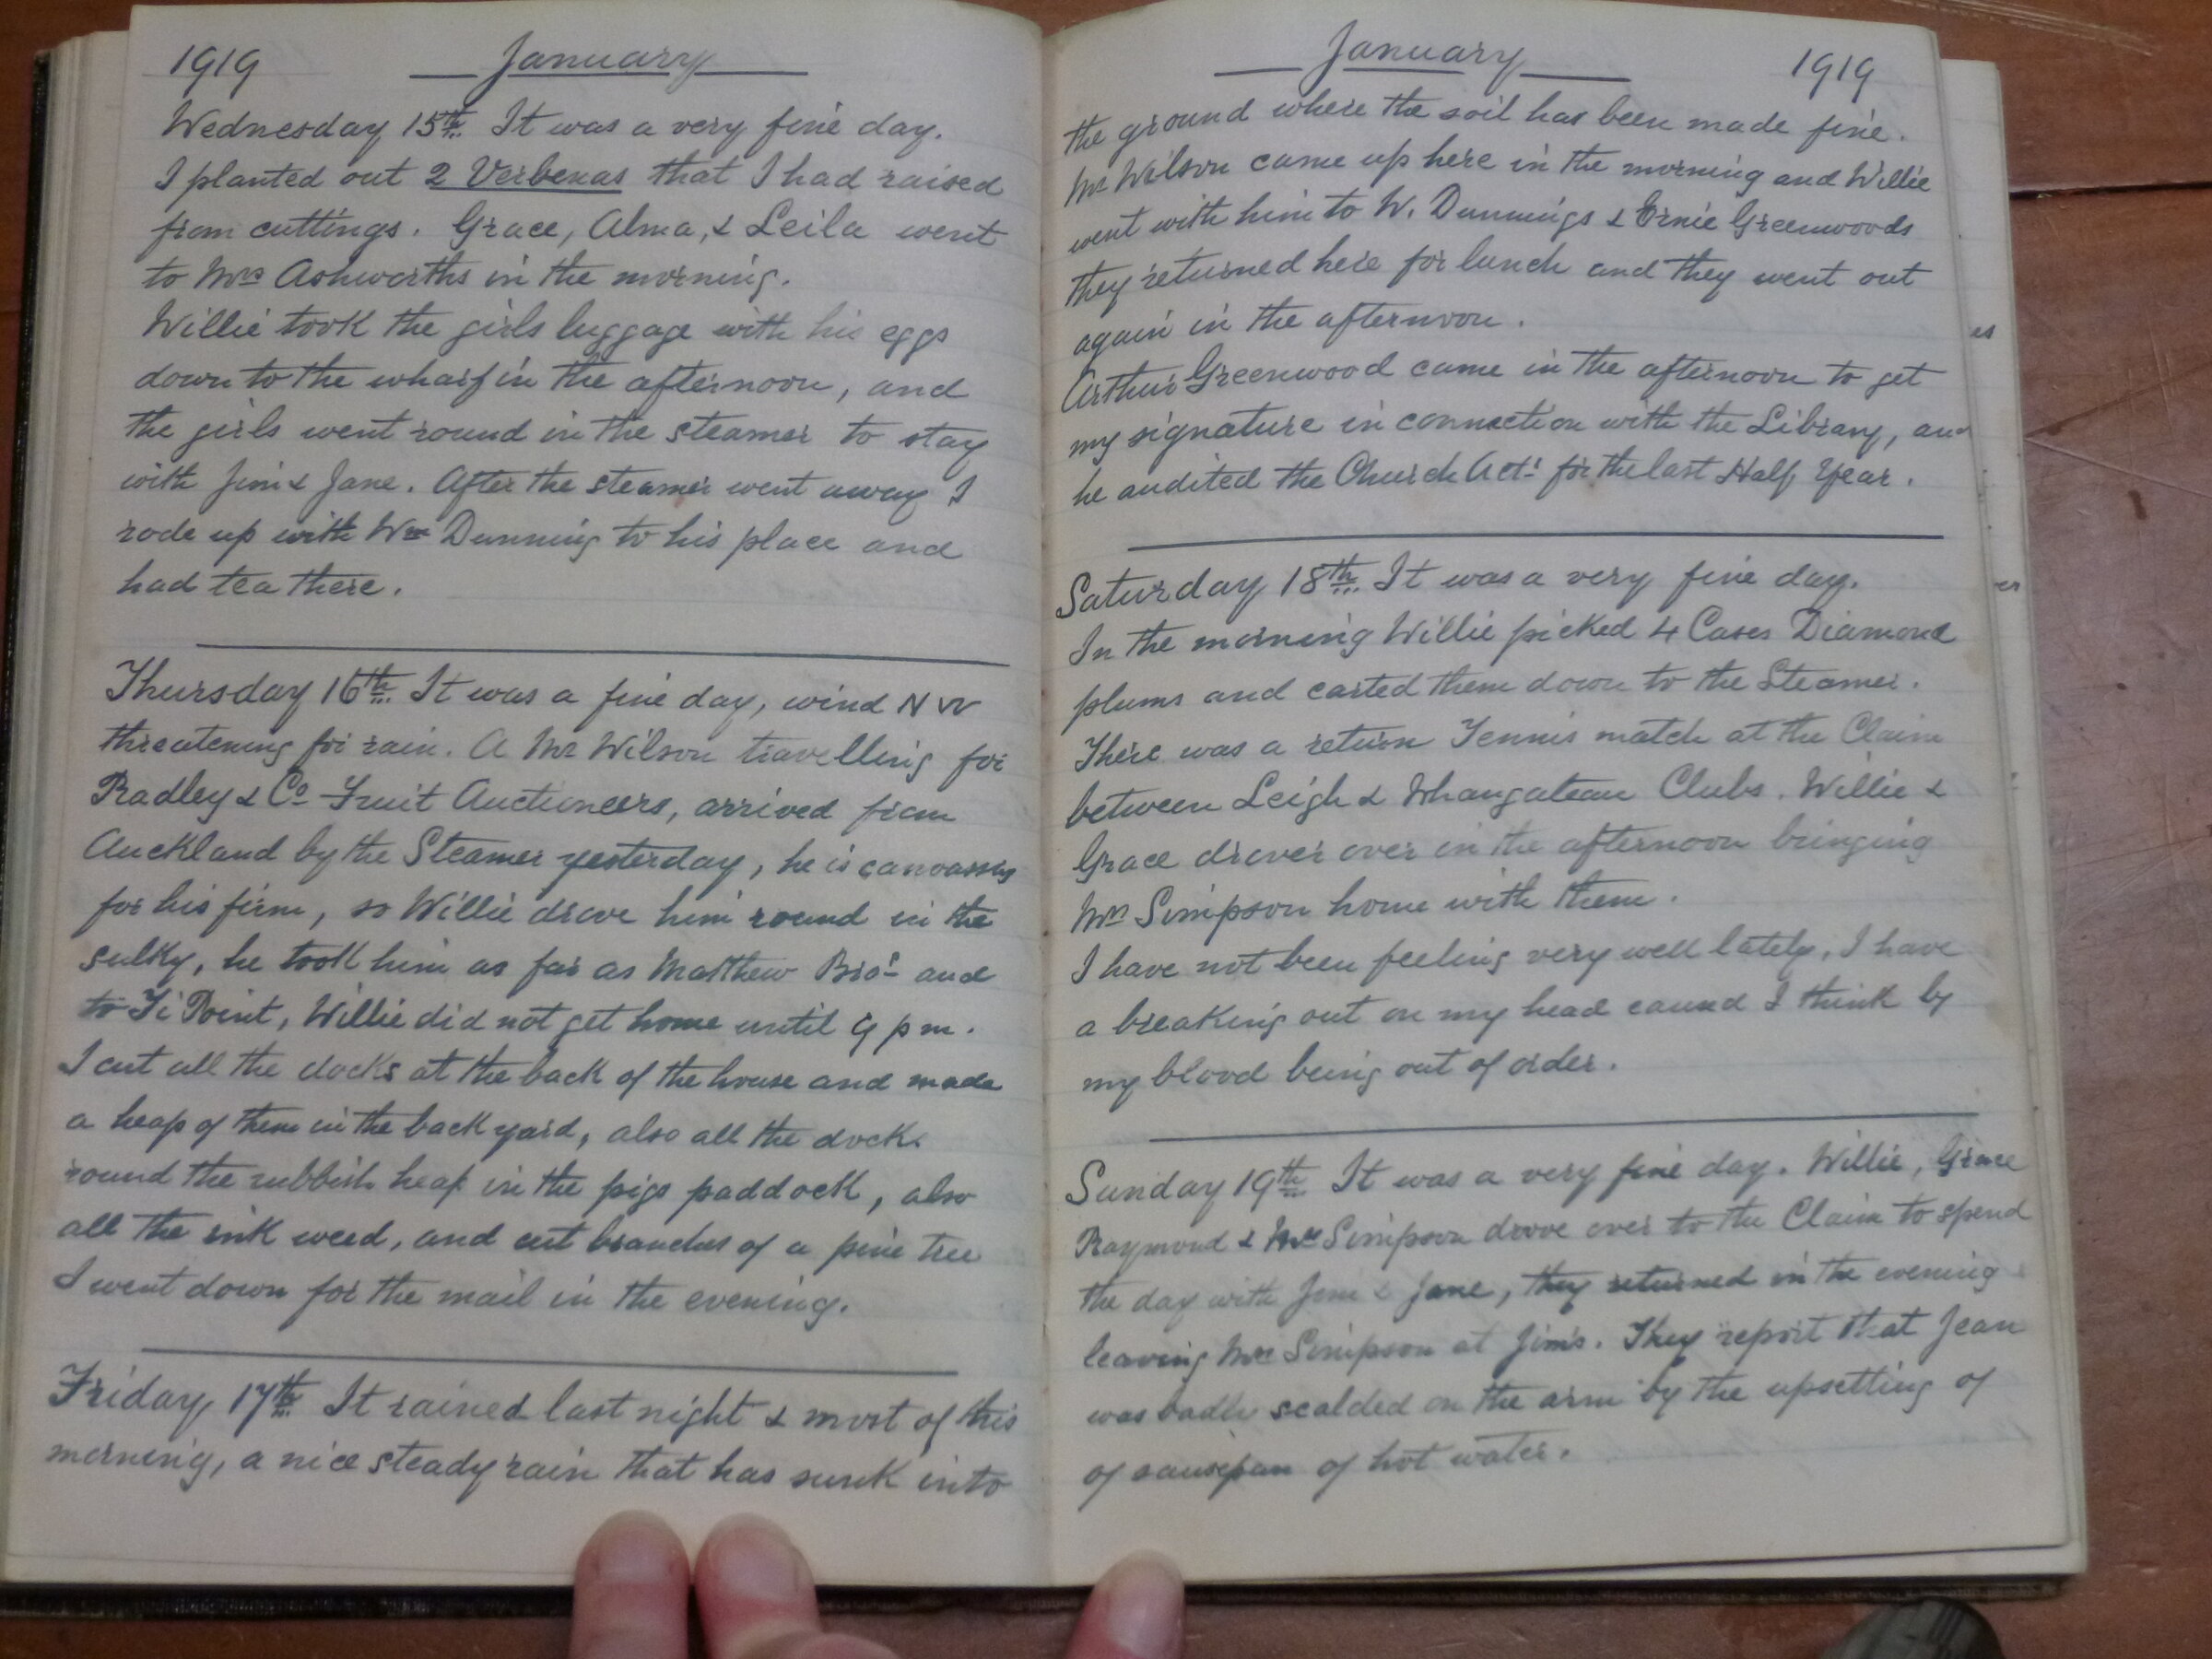 1919 January
Wednesday 15th. It was a very fine day.
I planted out 2 Verbenas that I had raised
from cuttings. Grace, Alma, & Leila went
to Mrs Ashworths in the morning.
Willie took the girls luggage with his eggs
down to the wharf in the afternoon, and
the girls went round in the steamer to stay
with Jim & Jane. After the steamer went away I
rode up with Wm Dunning to his place and
had tea there.
Thursday 16th. It was a fine day, wind N W
threatening for rain. A Mr Wilson travelling for
Radley & Co Fruit Auctioneers, arrived from
Auckland by the Steamer yesterday, he is canvassing
for his firm, so Willie drove him round in the
sulky, he took him as far as Matthew Bros and
to Ti Point, Willie did not get home until 9 pm.
I cut all the docks at the back of the house and made
a heap of them in the back yard, also all the docks
round the rubbish heap in the pigs paddock, also
all the ink weed, and cut branches of a pine tree
I went down for the mail in the evening.
Friday 17th. It rained last night & most of this
morning, a nice steady rain that has sunk into
January 1919
the ground where the soil has been made fine.
Mr Wilson came up here in the morning and Willie
went with him to W. Dunnings & Ernie Greenwoods
they returned here for lunch and they went out
again in the afternoon.
Arthur Greenwood came in the afternoon to get
my signature in connection with the Library, and
he audited the Church Acts for the last Half Year.
Saturday 18th. It was a very fine day.
In the morning Willie picked 4 Cases Diamond
plums and carted them down to the Steamer.
There was a return Tennis match at the Claim
between Leigh & Whangateau Clubs. Willie &
Grace drover over in the afternoon bringing
Mrs Simpson home with them.
I have not been feeling very well lately, I have
a breaking out on my head caused I think by
my blood being out of order.
Sunday 19th. It was a very fine day. Willie, Grace
Raymond & Mrs Simpson drove over to the Claim to spend
the day with Jim & Jane, they returned in the evening
leaving Mrs Simpson at Jim's. They report that Jean
was badly scalded on the arm by the upsetting of
of saucepan of hot water.
es
er